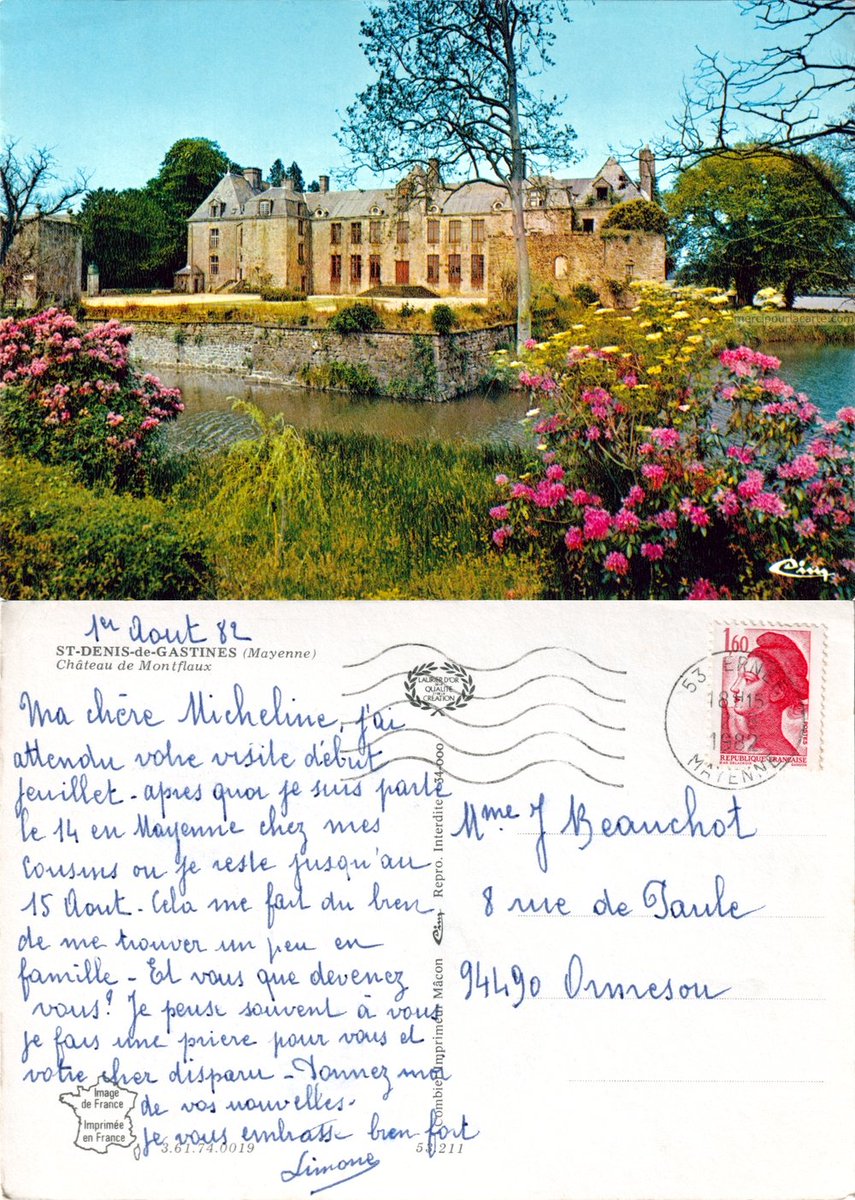 mercipourlacarte.com
Cim
1er Aout 82
ST-DENIS-de-GASTINES (Mayenne)
Château de Montflaux
LAURIER D'OR
DE LA
QUALITÉ
CRÉATION
1.60
RÉPUBLIQUE FRANÇAISE
POSTES
53 ERNEE
18H15
1982
MAYENNE
Ma chère Micheline, j'ai
attendu votre visite début
jeuillet - apres quoi je suis parti
le 14 en Mayenne chez mes
cousins ou je reste jusqu'au
15 Aout. Cela me fait du bien
de me trouver un peu en
famille - Et vous que devenez
vous? Je pense souvent à vous
je fais une prière pour vous et
votre cher disparu - Donnez moi
de vos nouvelles.
Je vous embrasse bien fort
Simone
Mme J Beauchot
8 rue de Paule
94490 Ormeson
Combier Imprimeur Mâcon Cim Repro. Interdite 34-000
Image
de France
Imprimée
en France
3.61.74.0019
53.211